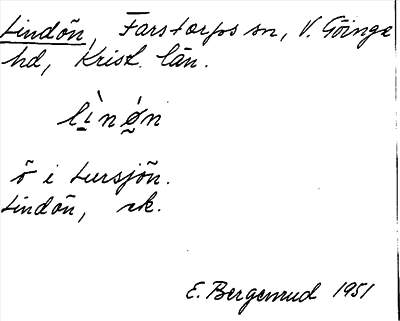 Lindön, Farstorps sn, V. Göinge
hd, Krist. län.
lìnǿn
ö i Lursjön.
Lindön, ek.
E. Bergenrud 1951